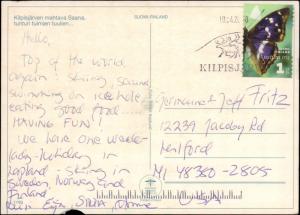 Kilpisjärven mahtava Saana,
tunturi tuimien tuulien...
SUOMI-FINLAND
Hello,
Top of the world
again! Skiing, sauna,
swimming on icehole,
eating good food....
HAVING FUN!
We have one week
lady-holiday in
Lapland: skiing in
Sweden, Norway and
Finland
KILPISJ
1
Germaine & Jeff Fritz
12239 Jacoby Rd
Milford
MI 48380-2805
USA